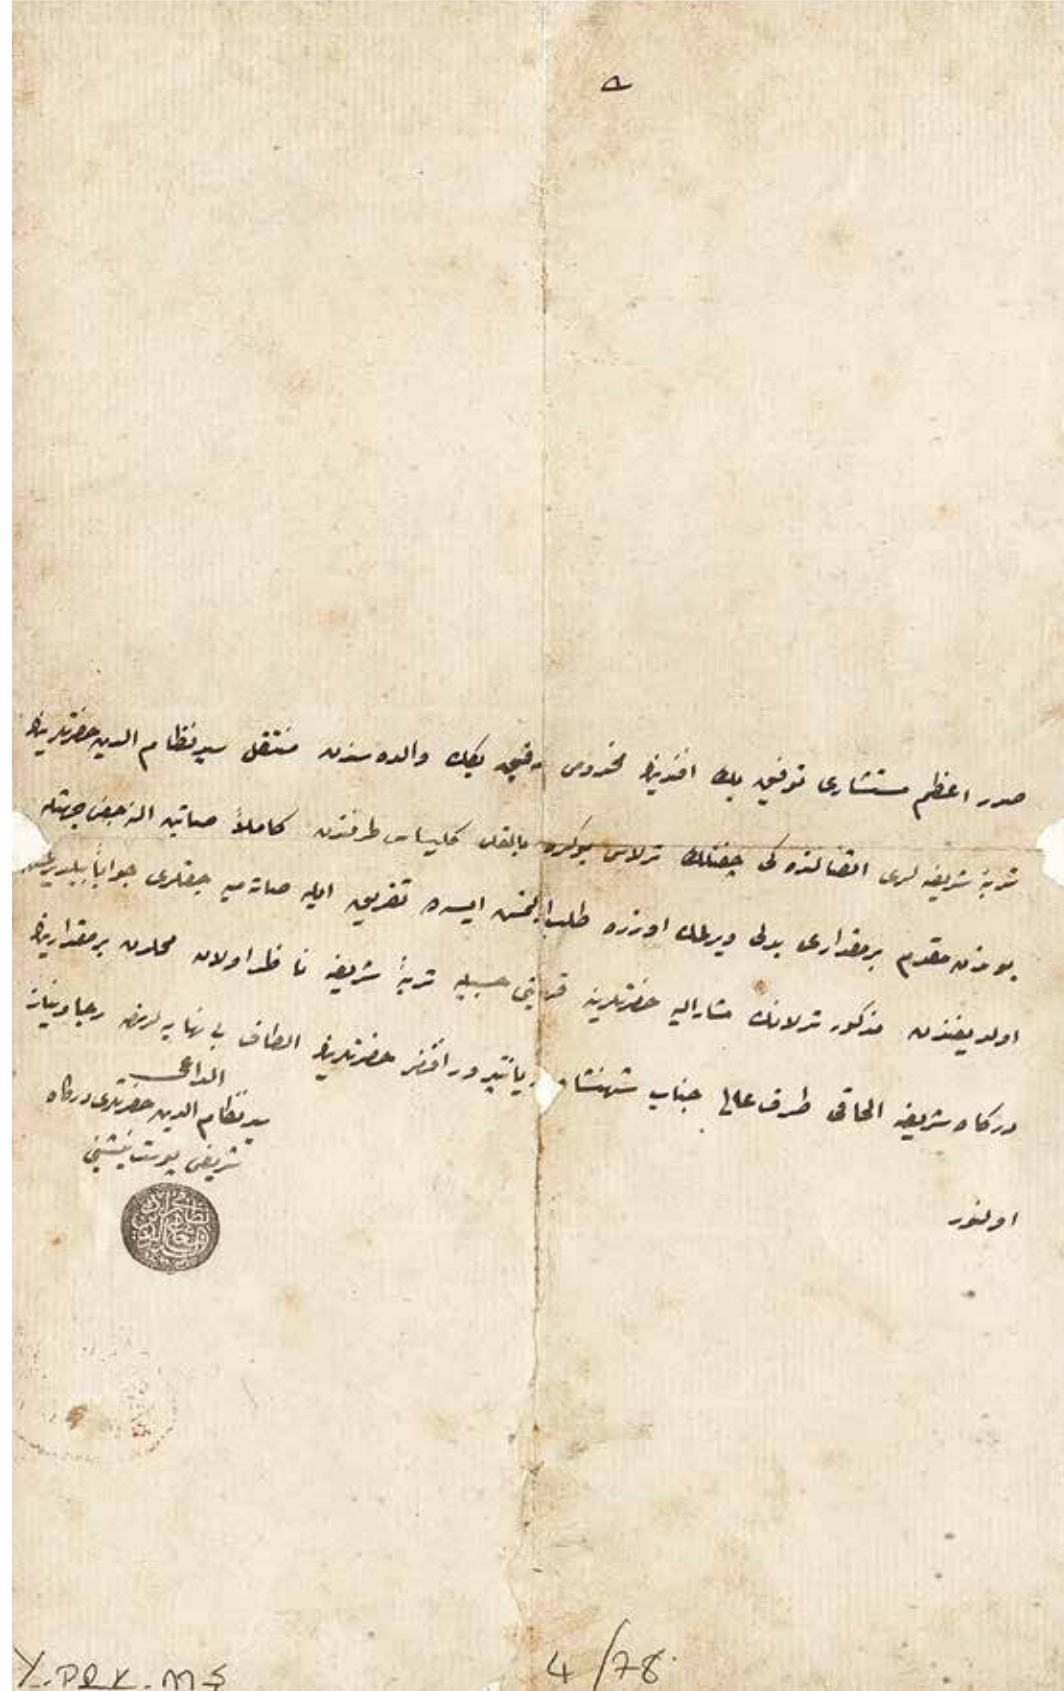 صدر اعظم مستشاری توفیق بك افندینك مخدومی رفیق بكك والده سندن منتقل سید نظام الدین حضرتلرینك
تربۀ شریفه لری اتصالنده كی چفتلك ترلاسی بوكره بالقلی كلیسا طرفندن كاملاً صاتین النه جغی جهتله
بوندن مقدم بر مقداری بدلی ویرلمك اوزره طلب ایسه ده تفریق ایله صاته میه جقلری جواباً
اولدیغندن مذكور ترلانك مشارالیه حضرتلرینه قربیتی حسبیله تربۀ شریفه ناظر اولان محلدن بر مقدارینك
دركاه شریفه الحاقی طرف عالی جناب الطاف بی نهایه لرندن رجا ونیاز
اولنور
الداعی
سید نظام الدین حضرتلری دركاه
شریفی پوست نشینی
Y.PRK.MŞ 4/78